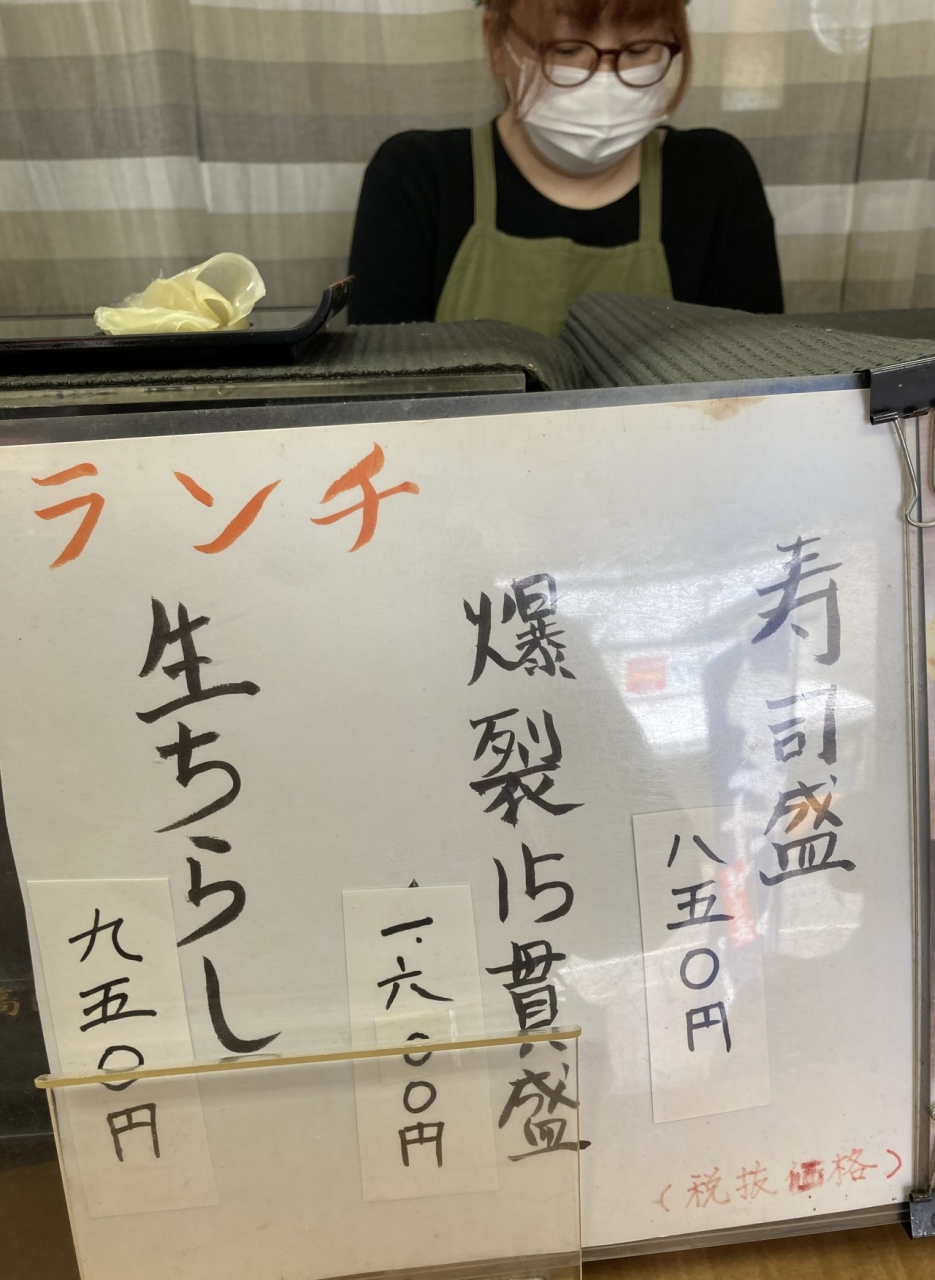 ランチ
寿司盛
八五〇円
爆裂15貫盛
一.六〇〇円
生ちらし
九五〇円
(税抜価格)